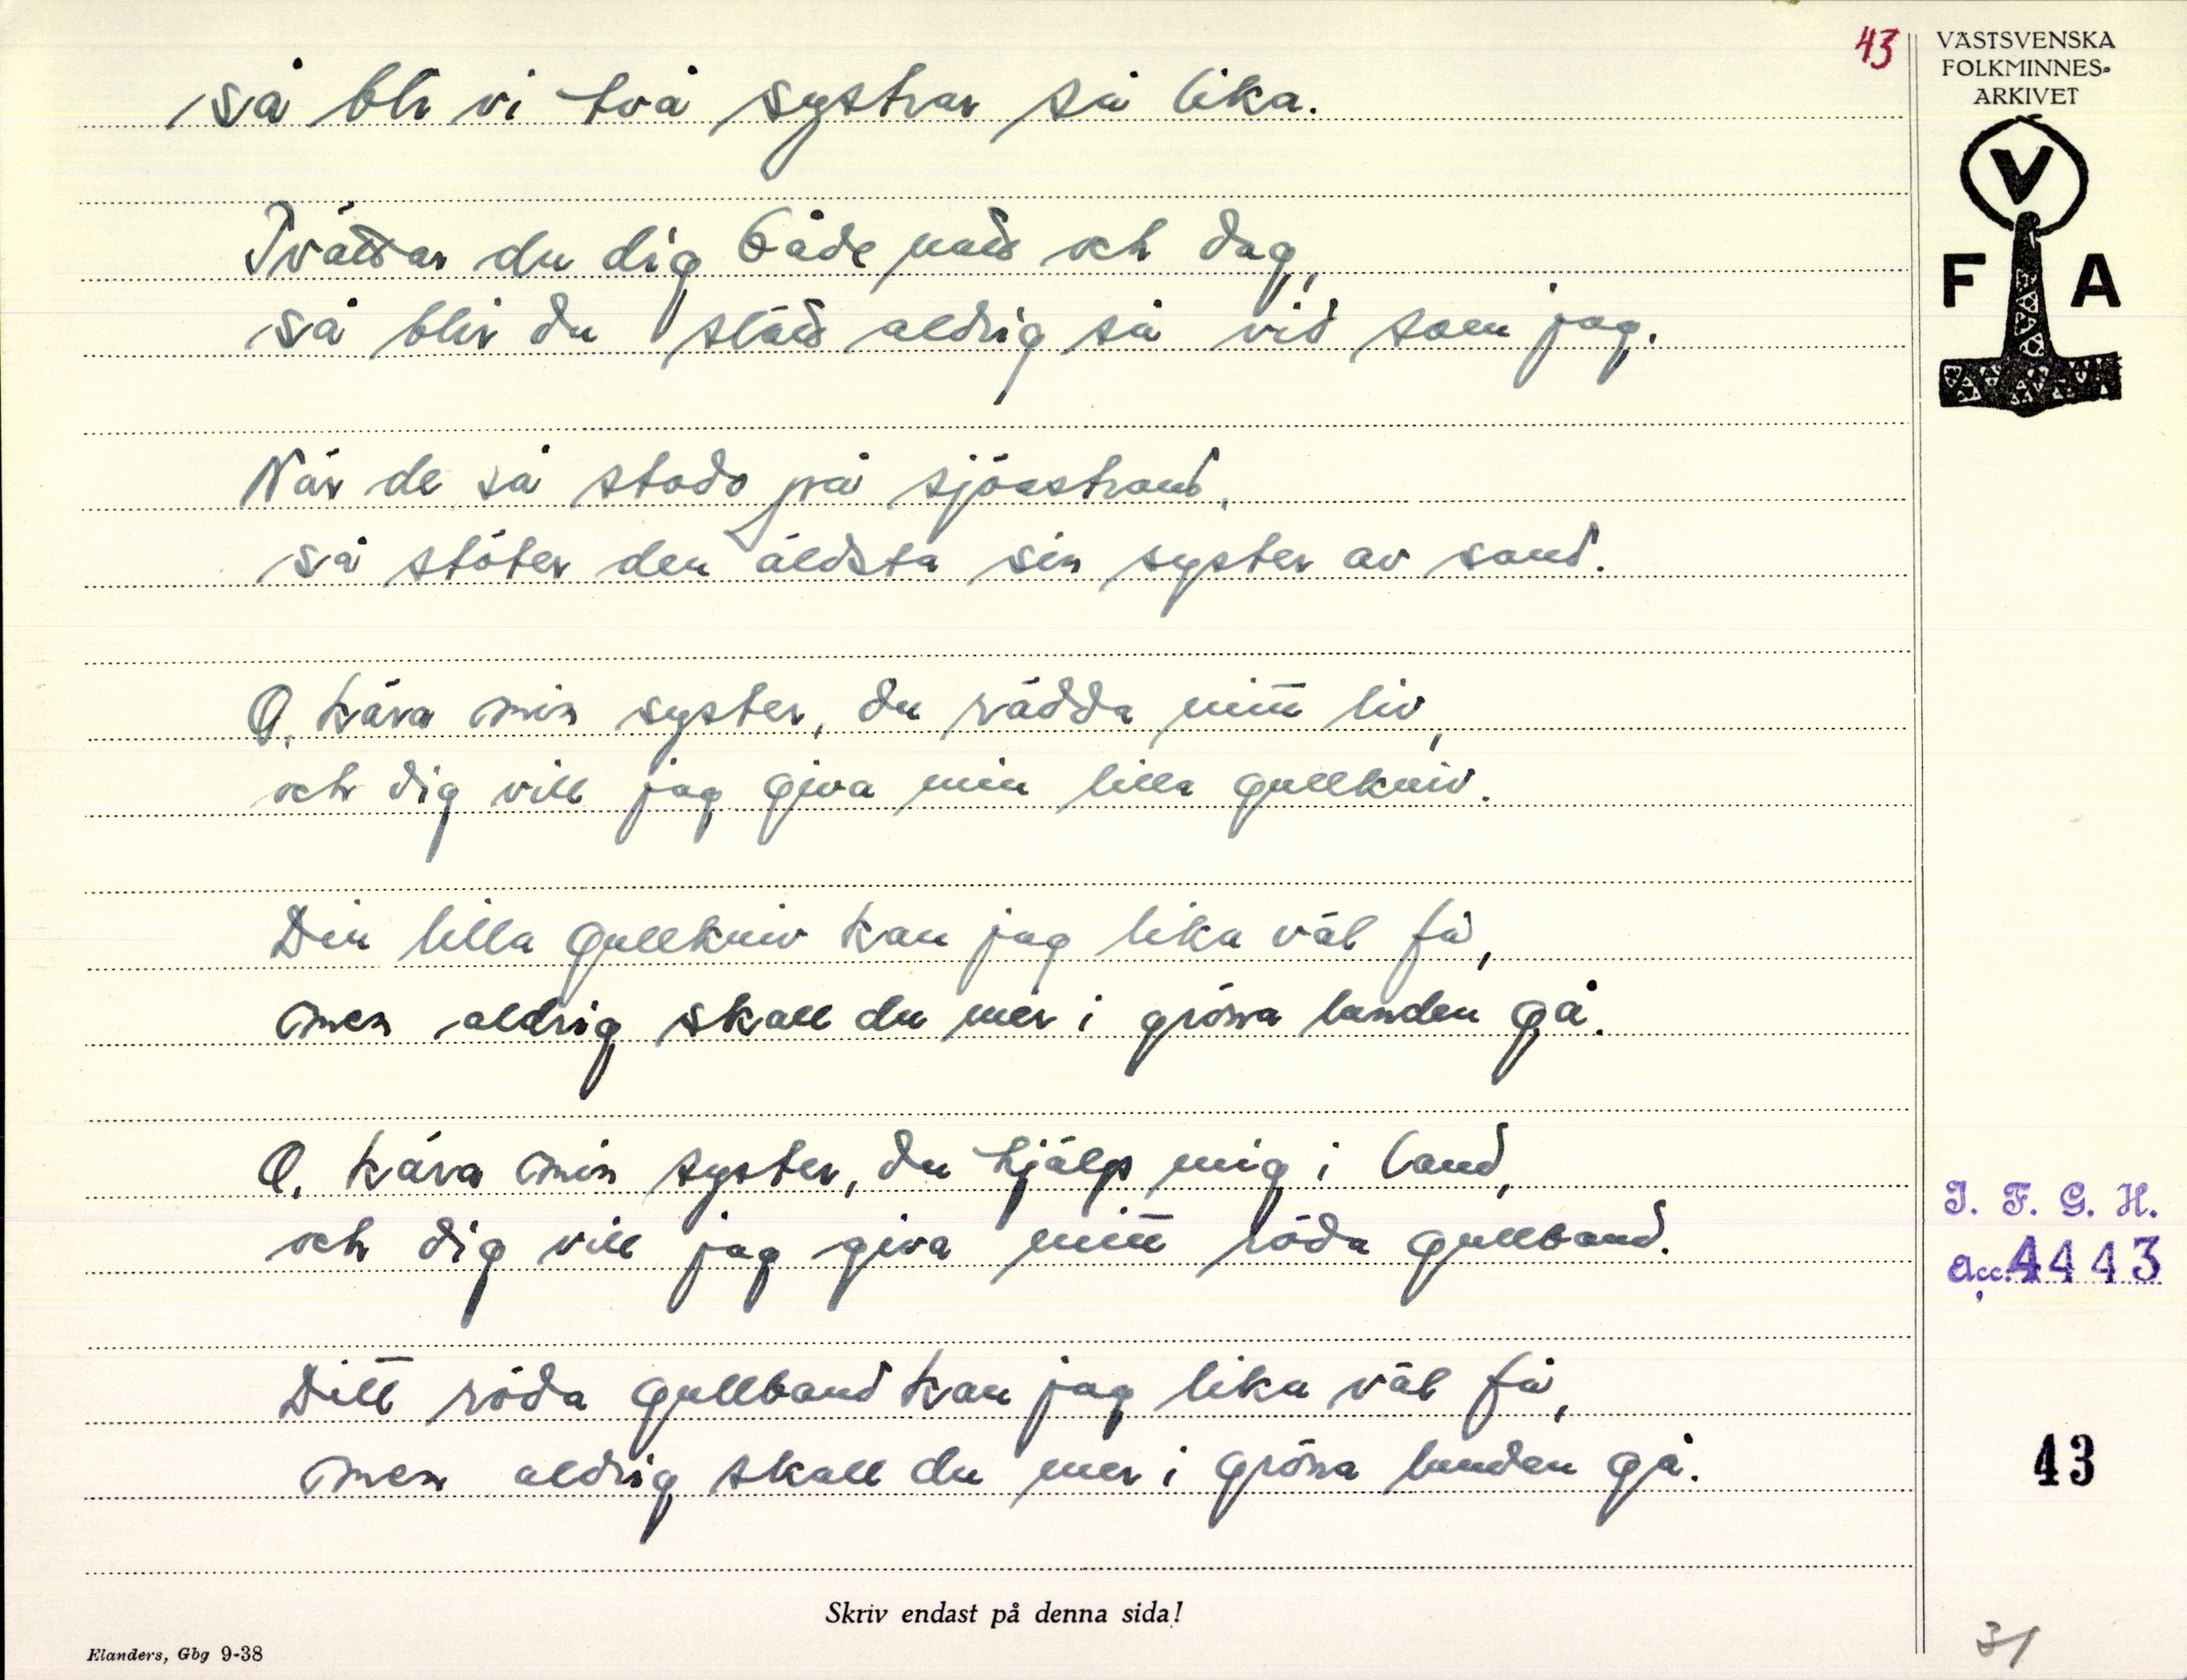 43
VÄSTSVENSKA
FOLKMINNES-
ARKIVET
V
F A
så blr vi två systrar så lika.
Tvättar du dig både natt och dag,
så blir du slätt aldrig så vid som jag.
När de så stodo på sjöastrand,
så stöter den äldsta sin syster av sand.
O, kära min syster, du rädda mitt liv,
och dig vill jag giva min lilla gullkniv.
Din lilla gullkniv kan jag lika väl få,
men aldrig skall du mer i gröna lunden gå.
O, kära min syster, du hjälp mig i land,
och dig vill jag giva mitt röda gullband.
Ditt röda gullband kan jag lika väl få,
men aldrig skall du mer i gröna lunden gå.
I. F. G. H.
Acc. 4443
43
Skriv endast på denna sida!
Elanders, Gbg 9-38
31